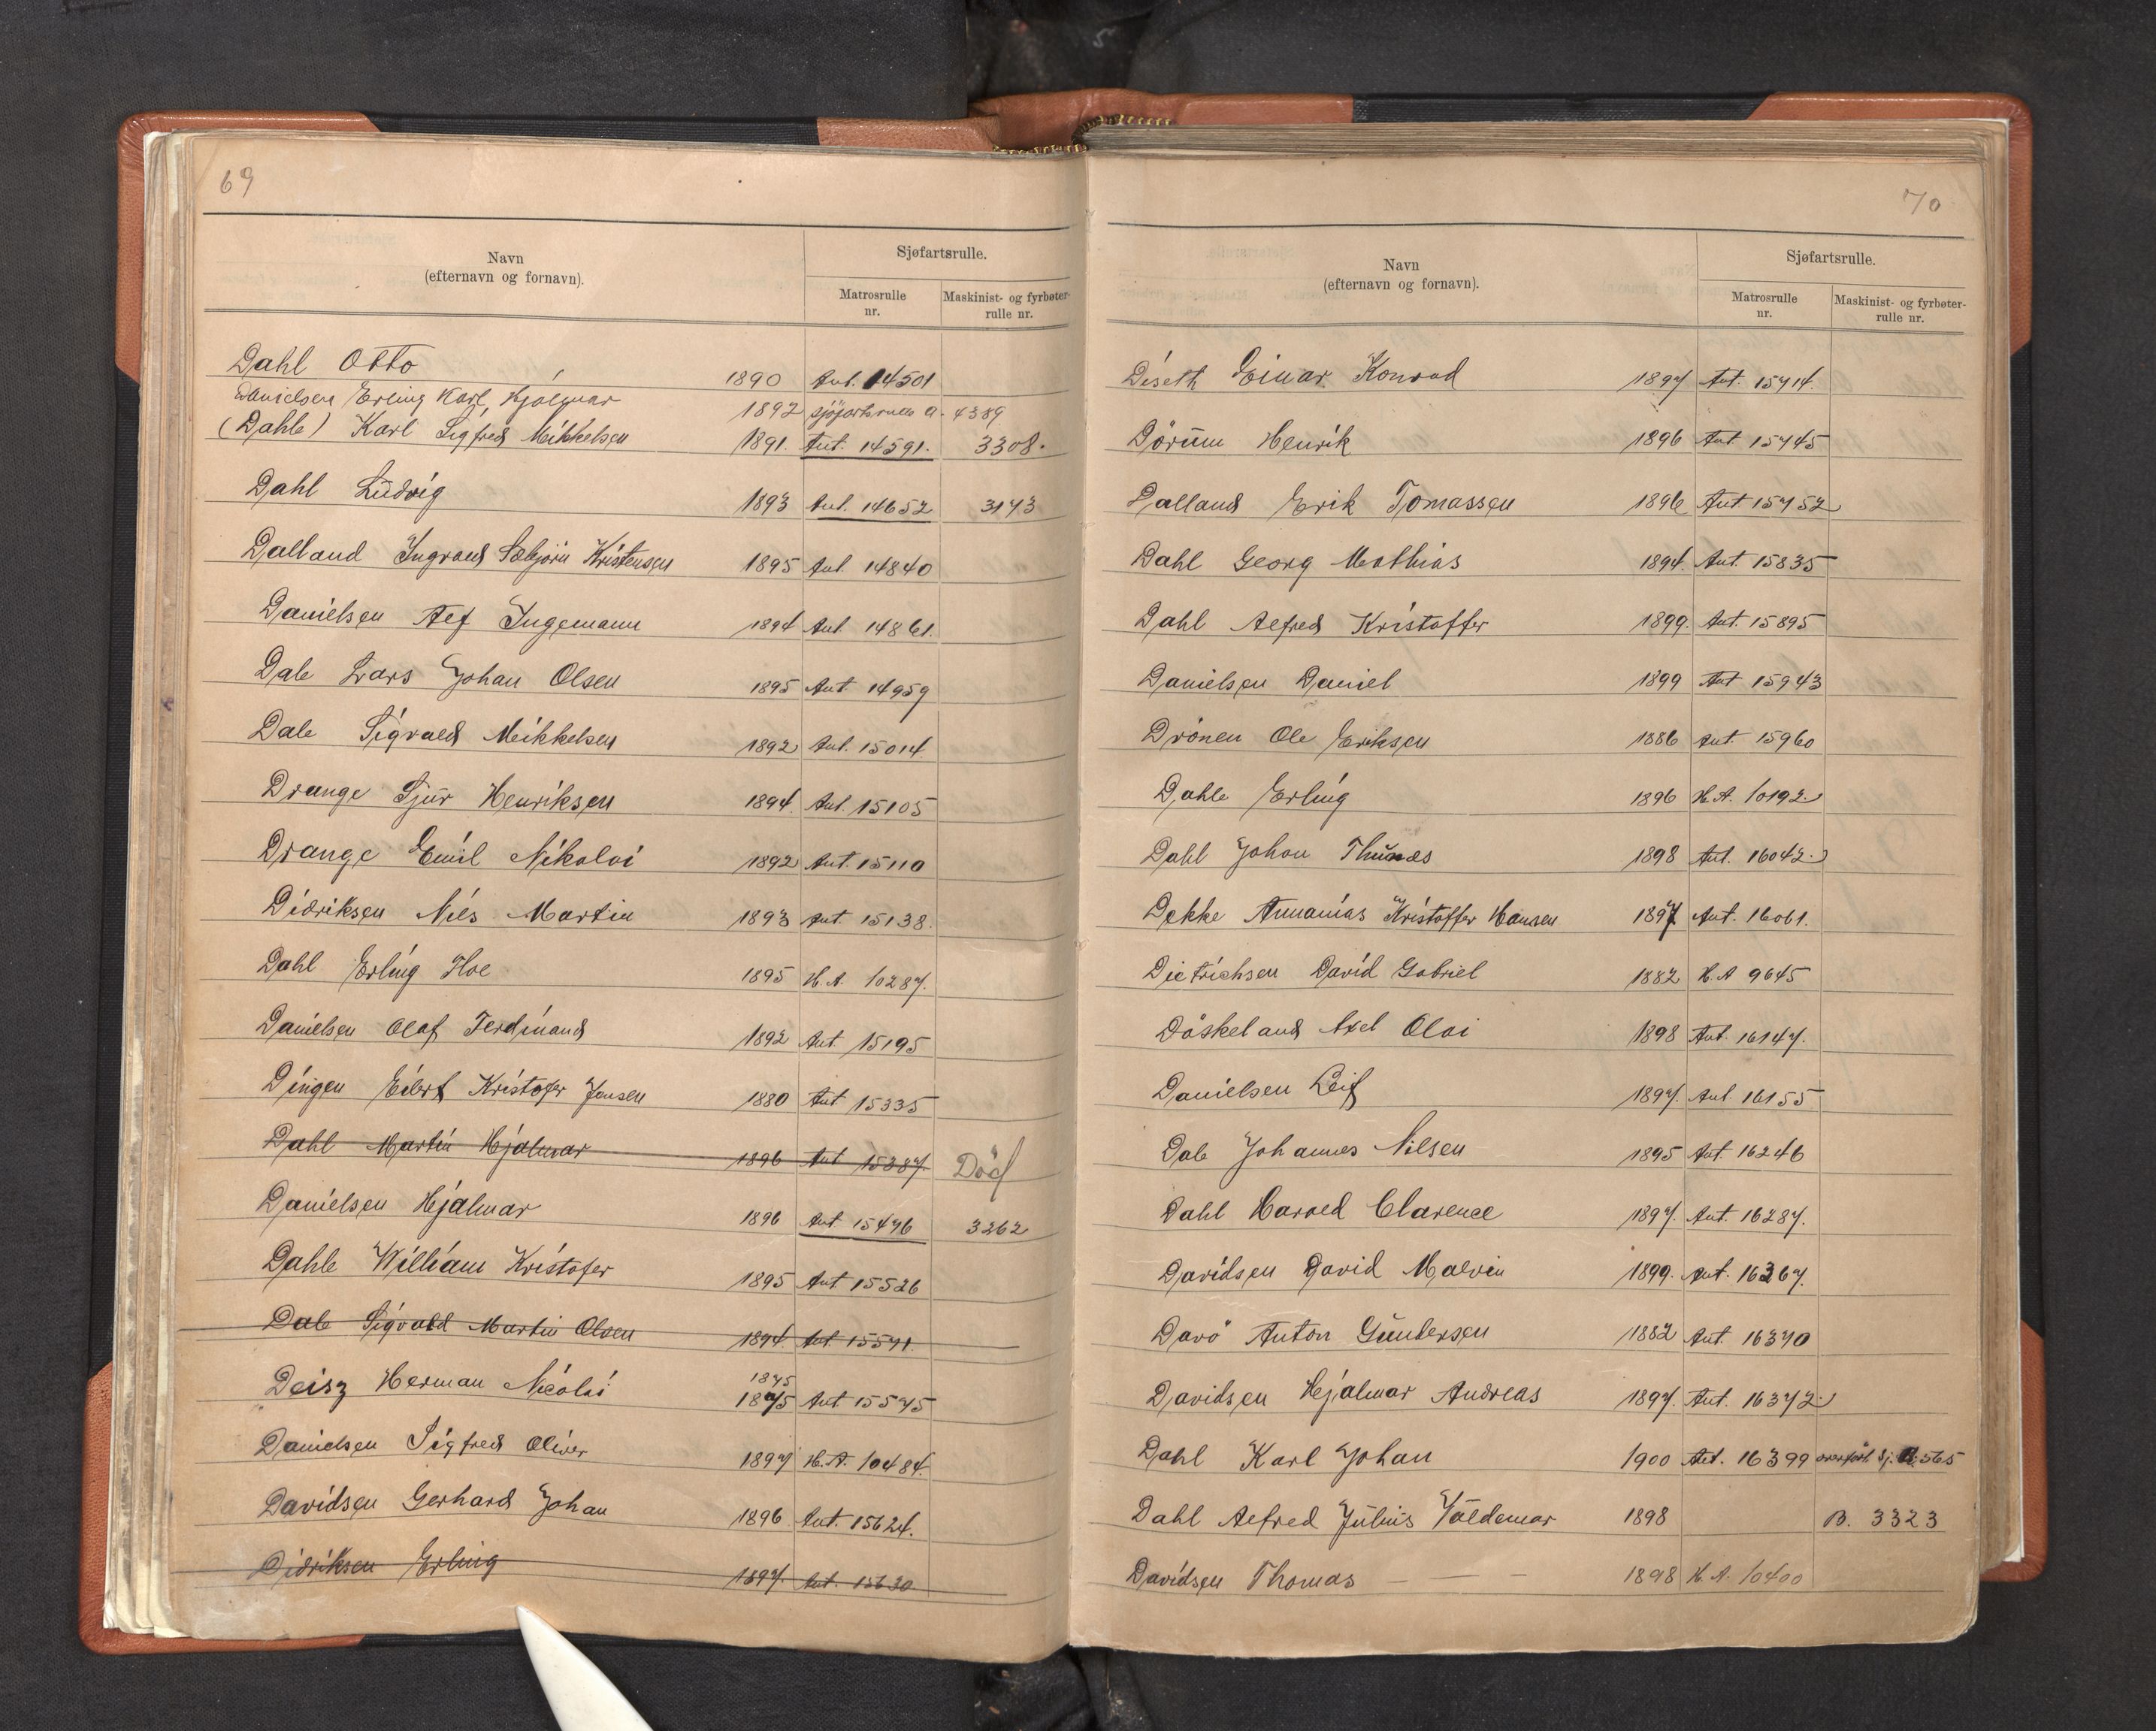 69
Navn
(efternavn og fornavn).
Sjøfartsrulle.
Matrosrulle
nr.
Maskinist- og fyrbøter-
rulle nr.
Dahl Otto 1890 Ant. 14501
Danielsen Erling Karl, Hjalmar 1892 sjöfartsrulle A. 4389
(Dahle) Karl Sigfred Mikkelsen 1891. Ant. 14591. 3308.
Dahl Ludvig 1893 Ant. 14652 3173
Dalland Ingvald Sæbjörn Kristensen 1895 Ant. 14840
Danielsen Alf Ingemann 1894 Ant. 14861.
Dale Lars Johan Olsen 1895 Ant 14959
Dale Sigvald Mikkelsen 1892 Ant. 15014.
Drange Sjur Henriksen 1894. Ant. 15105
Drange Emil Nikolai 1892 Ant. 15110
Didriksen Nils Martin 1893 Ant. 15138.
Dahl Erling Hoe 1895 H.A. 10287.
Danielsen Olaf Ferdinand 1892 Ant 15195
Dingen Eilert Kristofer Jensen 1880 Ant 15335
Dahl Martin Hjalmar 1896 Ant 15387. Död
Danielsen Hjalmar 1896 Ant 15476 3262
Dahle William Kristofer 1895 Ant 15526
Dale Sigvald Martin Olsen 1894. Ant. 15571.
Deisz Herman Nicolai 1875 1875 Ant 15575
Danielsen Sigfred Oliver 1897 H.A. 10484.
Davidsen Gerhard Johan 1896 Ant. 15624.
Didriksen Erling 1897. Ant. 15630
70
Navn
(efternavn og fornavn).
Sjøfartsrulle.
Matrosrulle
nr.
Maskinist- og fyrbøter-
rulle nr.
Diseth Einar Konrad 1897 Ant. 15714.
Dörum Henrik 1896 Ant 15745
Dalland Erik Tomassen 1896 Ant 15752
Dahl Georg Mathias 1894. Ant. 15835
Dahl Alfred Kristoffer 1899. Ant. 15895
Danielsen Daniel 1899 Ant 15943
Drönen Ole Eriksen 1886 Ant. 15960
Dahle Erling 1896 H.A. 10192.
Dahl Johan Thunæs 1898 Ant. 16042.
Dekke Annanias Kristoffer Hansen 1897. Ant. 16061.
Dietrichsen David Gabriel 1882 H.A 9645
Döskeland Axel Olai 1898 Ant. 16147.
Danielsen Leif 1897. Ant. 16155
Dale Johannes Nilsen 1895 Ant. 16246
Dahl Harald Clarence 1897. Ant. 16287.
Davidsen David Malvin 1899. Ant. 16367.
Davö Anton Guntersen 1882 Ant. 16370
Davidsen Hjalmar Andreas 1897. Ant. 16372.
Dahl Karl Johan 1900 Ant. 16399 overført Sj. A. 565
Dahl Alfred Julius Valdemar 1898 B. 3323
Davidsen Thomas — — — 1898 H.A. 10400